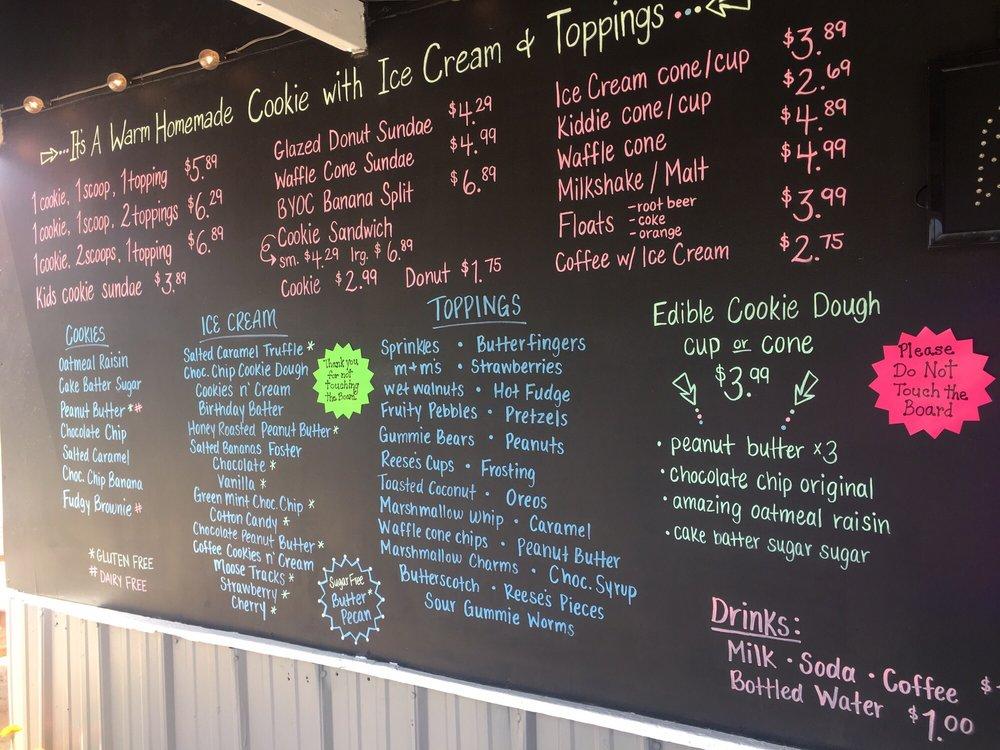 It's A Warm Homemade Cookie with Ice Cream & Toppings...
1 cookie, 1 scoop, 1 topping $5.89
1 cookie, 1 scoop, 2 toppings $6.29
1 cookie, 2 scoops, 1 topping $6.89
Kids cookie sundae $3.89
Glazed Donut Sundae $4.29
Waffle Cone Sundae $4.99
BYOC Banana Split $6.89
Cookie Sandwich
sm. $4.29 lrg. $6.89
Cookie $2.99 Donut $1.75
Ice Cream cone/cup $3.89
Kiddie cone/cup $2.69
Waffle cone $4.89
Milkshake / Malt $4.99
Floats -root beer $3.99
-coke
-orange
Coffee w/ Ice Cream $2.75
COOKIES
Oatmeal Raisin
Cake Batter Sugar
Peanut Butter*#
Chocolate Chip
Salted Caramel
Choc. Chip Banana
Fudgy Brownie#
*GLUTEN FREE
# DAIRY FREE
ICE CREAM
Salted Caramel Truffle*
Choc. Chip Cookie Dough
Cookies n' Cream
Birthday Batter
Honey Roasted Peanut Butter*
Salted Bananas Foster
Chocolate*
Vanilla*
Green Mint Choc. Chip*
Cotton Candy*
Chocolate Peanut Butter*
Coffee Cookies n' Cream
Moose Tracks*
Strawberry*
Cherry*
Thank you
for not
touching
the Board
Sugar Free
Butter*
Pecan
TOPPINGS
Sprinkles • Butterfingers
m+m's • Strawberries
wet walnuts • Hot Fudge
Fruity Pebbles • Pretzels
Gummie Bears • Peanuts
Reese's Cups • Frosting
Toasted Coconut • Oreos
Marshmallow whip • Caramel
Waffle cone chips • Peanut Butter
Marshmallow Charms • Choc. Syrup
Butterscotch • Reese's Pieces
Sour Gummie Worms
Edible Cookie Dough
cup or cone
$3.99
• peanut butter x3
• chocolate chip original
• amazing oatmeal raisin
• cake batter sugar sugar
Please
Do Not
Touch the
Board
Drinks:
Milk • Soda • Coffee $
Bottled Water $1.00